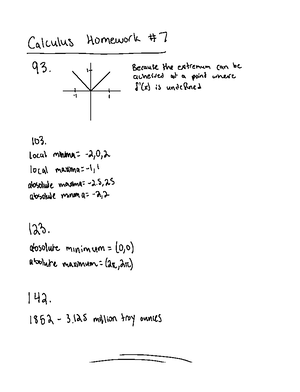 Calculus Homework #7
93.
Because the extremum can be
achieved at a point where
f'(x) is undefined
1
-1 1
103.
local minima = -2,0,2
local maxima = -1, 1
absolute maxima = -2.5, 2.5
absolute minima = -2,2
123.
absolute minimum = (0,0)
absolute maximum = (2π, 2π)
142.
1852 - 3.125 million troy ounces